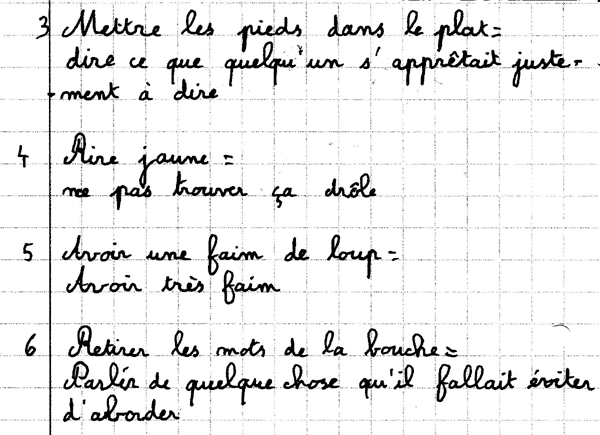 3 Mettre les pieds dans le plat=
dire ce que quelqu'un s'apprêtait juste-
-ment à dire
4 Rire jaune =
ne pas trouver ça drôle
5 Avoir une faim de loup=
Avoir très faim
6 Retirer les mots de la bouche=
Parler de quelque chose qu'il fallait éviter
d'aborder